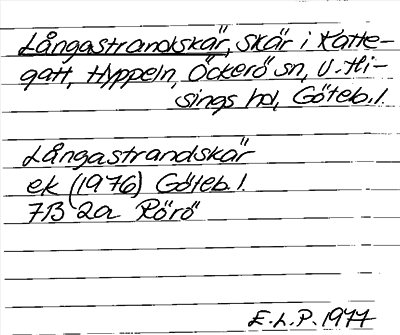 Långastrandskär, skär i Katte-
gatt, Hyppeln, Öckerö sn, V. Hi-
sings hd, Göteb. l.
Långastrandskär
ek (1976) Göteb. l.
7B 2a Rörö
E.L.P. 1977